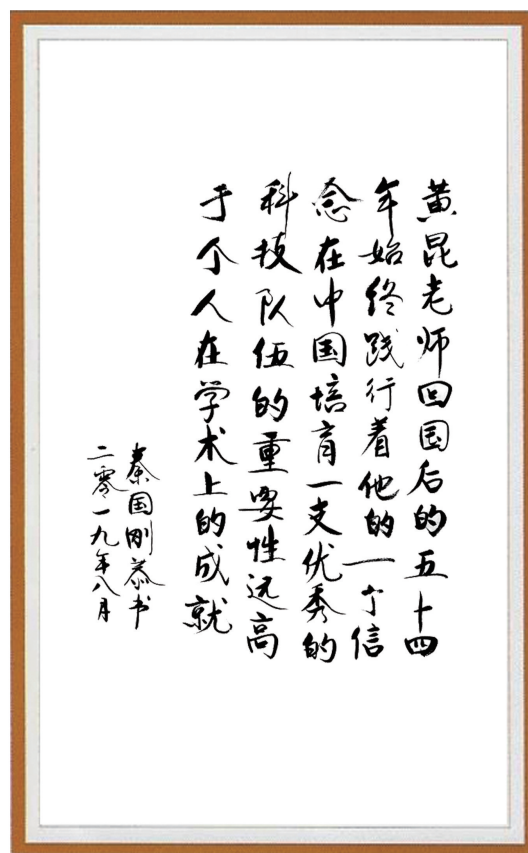 黄昆老师回国后的五十四
年始终践行着他的一个信
念在中国培育一支优秀的
科技队伍的重要性远高
于个人在学术上的成就
秦国刚恭书
二零一九年八月